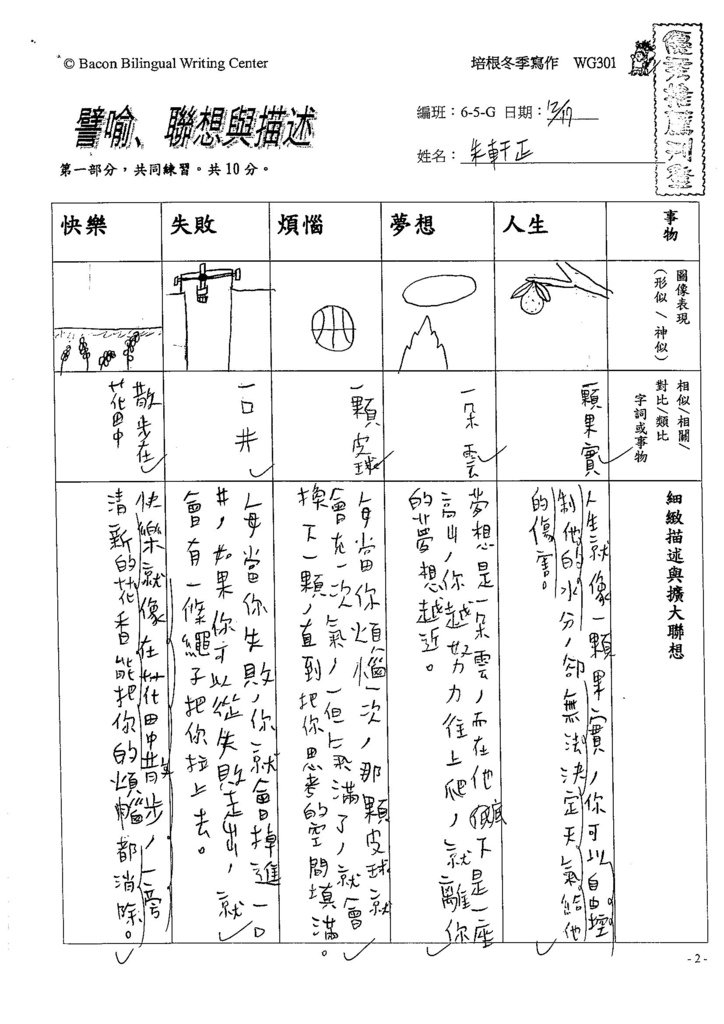 © Bacon Bilingual Writing Center
培根冬季寫作 WG301
優秀推薦刊登
譬喻、聯想與描述
編班：6-5-G 日期：12/17
姓名：朱軒正
第一部分，共同練習。共10分。
事物
人生
夢想
煩惱
失敗
快樂
圖像表現
（形似／神似）
相似/相關/
對比/類比
字詞或事物
一顆果實
一朵雲
一顆皮球
一口井
散步在
花田中
細緻描述與擴大聯想
人生就像一顆果實，你可以自由控
制他的水分，卻無法決定天氣給他
的傷害。
夢想是一朵雲，而在他底下是一座
高山，你越努力往上爬，就離你
的夢想越近。
每當你煩惱一次，那顆皮球就
會充一次氣，一但氣滿了，就會
換下一顆，直到把你思考的空間填滿。
每當你失敗，你就會掉進一口
井，如果你可以從失敗走出，就
會有一條繩子把你拉上去。
快樂就像在花田中散步，一旁
清新的花香能把你的煩惱都消除。
- 2 -